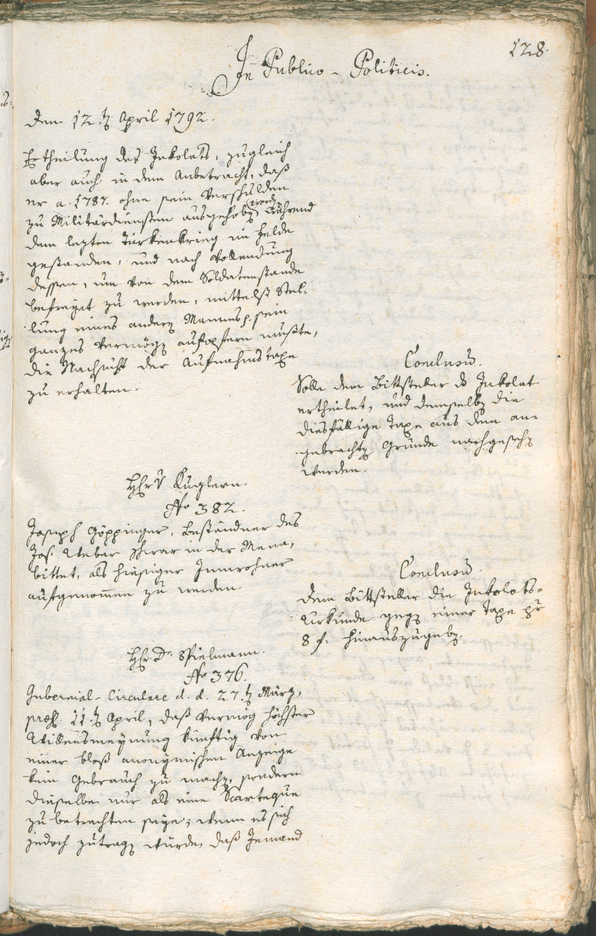 128.
In Publico-Politicis.
Den 12.ten April 1792.
Ertheilung des Inkolats, zugleich
aber auch in dem Anbetracht, daß
er a. 1787. ohne sein Verschulden
zu Militärdiensten ausgehoben worden, während
dem letzten Türkenkrieg im Felde
gestanden, und nach Vollendung
dessen, um von dem Soldatenstande
befreyet zu werden, mittelst Stel-
lung eines andern Mannes sein
ganzes Vermögen aufopfern mußte,
die Nachsicht der Aufnahmstaxe
zu erhalten.
Conclusum.
Solle dem Bittsteller das Inkolat
ertheilet, und demselben die
diesfällige Taxe aus den an-
gebrachten Gründen nachgesehen
werden.
Herr v. Kuglern.
No 382.
Joseph Göppinger, Beständner des
Jos. Weber in der
bittet, als hiesiger Innwohner
aufgenommen zu werden
Conclusum.
Dem Bittsteller die Inkolats-
Urkunde gegen einer Taxe pr
8 f. hinauszugeben.
Herr Dr. Spielmann.
No 376.
Gubernial-Circulare d. d. 27.ten März,
pres. 11.ten April, daß vermög höchster
Willensmeynung künftig von
einer bloß anonymischen Anzeige
kein Gebrauch zu machen, sondern
dieselbe nur als eine Scarteque
zu betrachten seye; wenn es sich
jedoch zutragen würde, daß Jemand